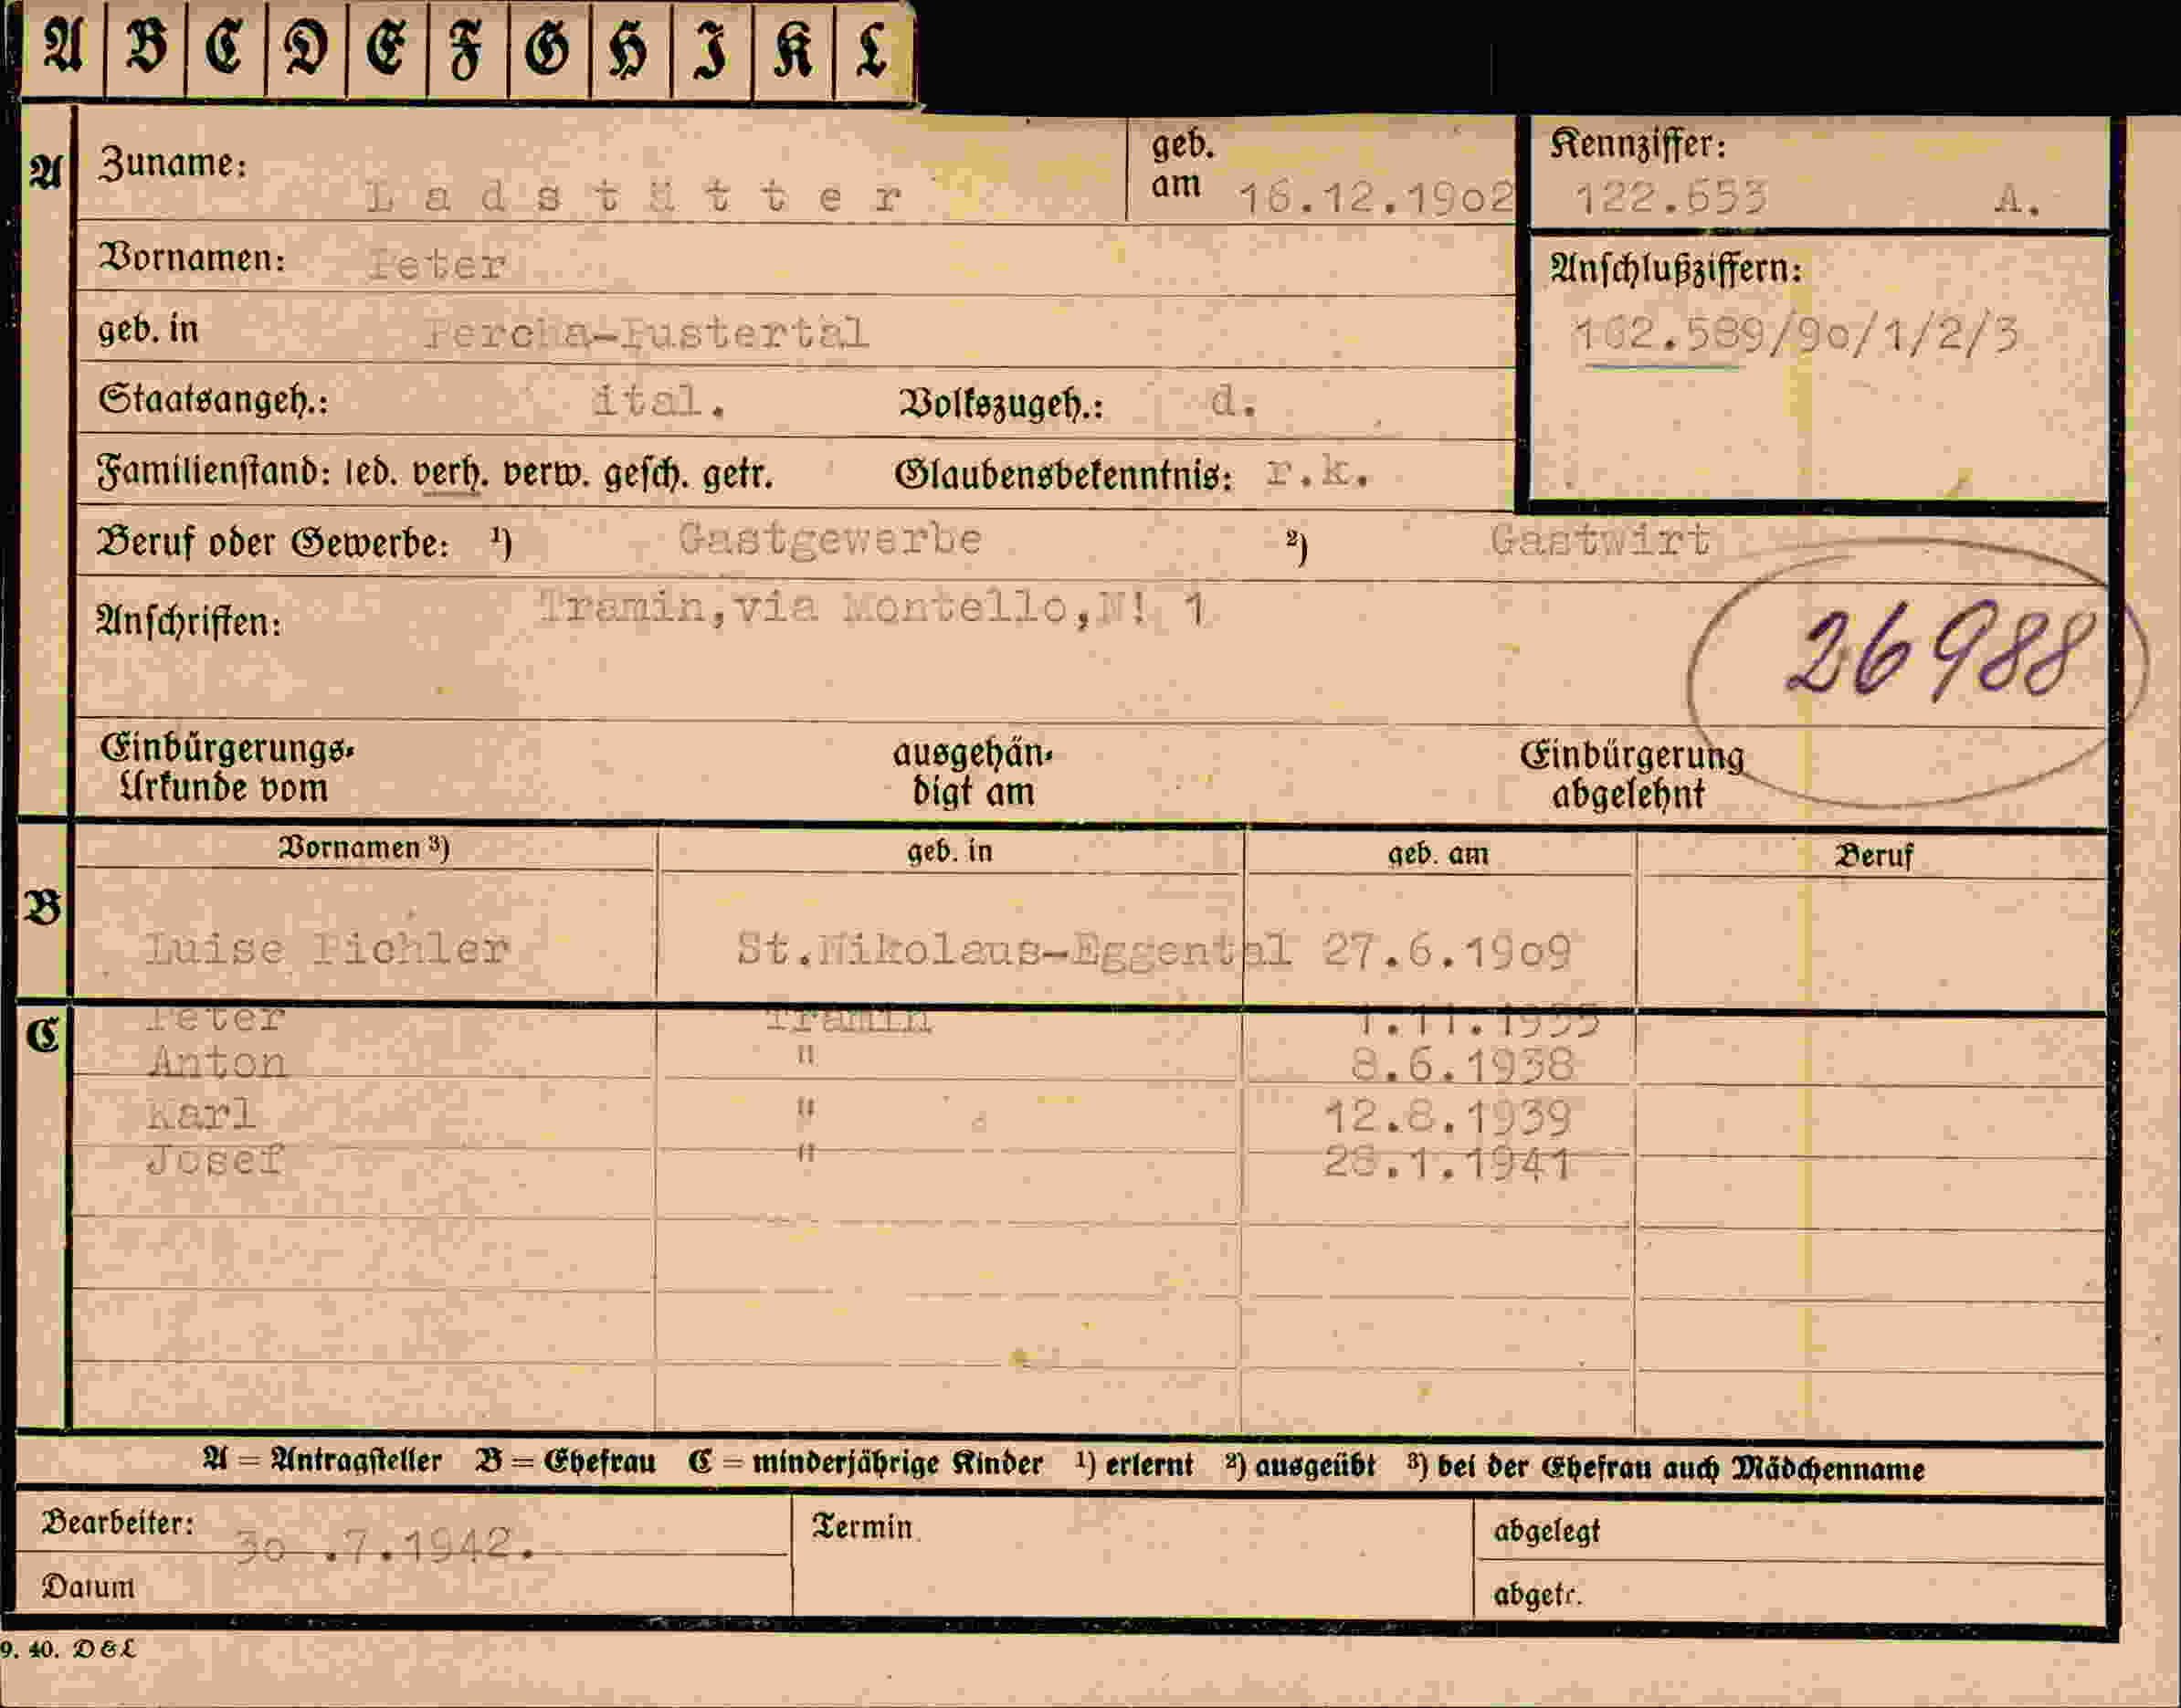 A B C D E F G H I K L
A
Zuname: Ladstätter
geb. am 16.12.1902
Kennziffer:
122.653 A.
Vornamen: Peter
Anschlußziffern:
162.589/90/1/2/3
geb. in Percha-Pustertal
Staatsangeh.: ital. Volkszugeh.: d.
Familienstand: led. verh. verw. gesch. getr. Glaubensbekenntnis: r.k.
Beruf oder Gewerbe: 1) Gastgewerbe 2) Gastwirt
Anschriften: Tramin,via Montello,N! 1
26988
Einbürgerungs- ausgehän- Einbürgerung
Urkunde vom digt am abgelehnt
Vornamen 3) geb. in geb. am Beruf
B
Luise Pichler St.Nikolaus-Eggental 27.6.1909
C
Peter Tramin 1.11.1935
Anton " 8.6.1938
Karl " 12.8.1939
Josef " 28.1.1941
A = Antragsteller B = Ehefrau C = minderjährige Kinder 1) erlernt 2) ausgeübt 3) bei der Ehefrau auch Mädchenname
Bearbeiter: 30 .7.1942. Termin abgelegt
Datum abgetr.
9. 40. D&L